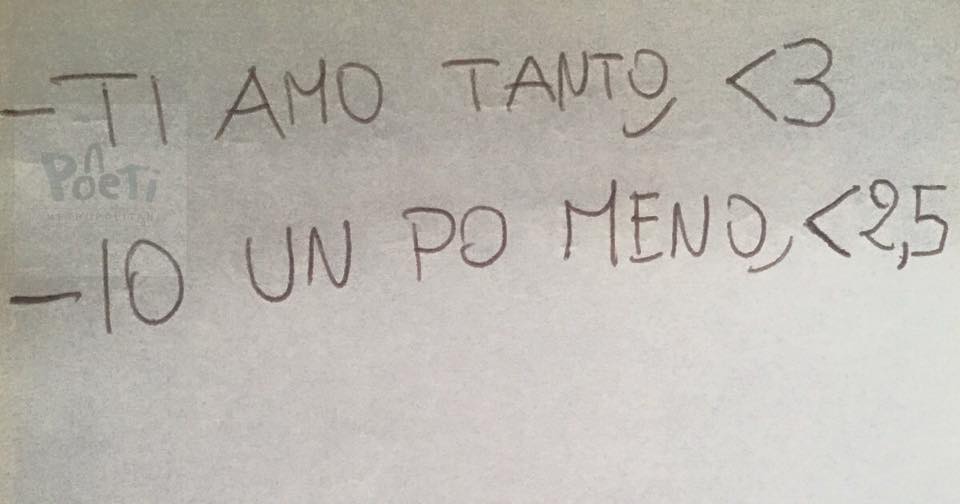 -TI AMO TANTO, <3
Poeti
METROPOLITANI
-IO UN PO MENO, <2,5